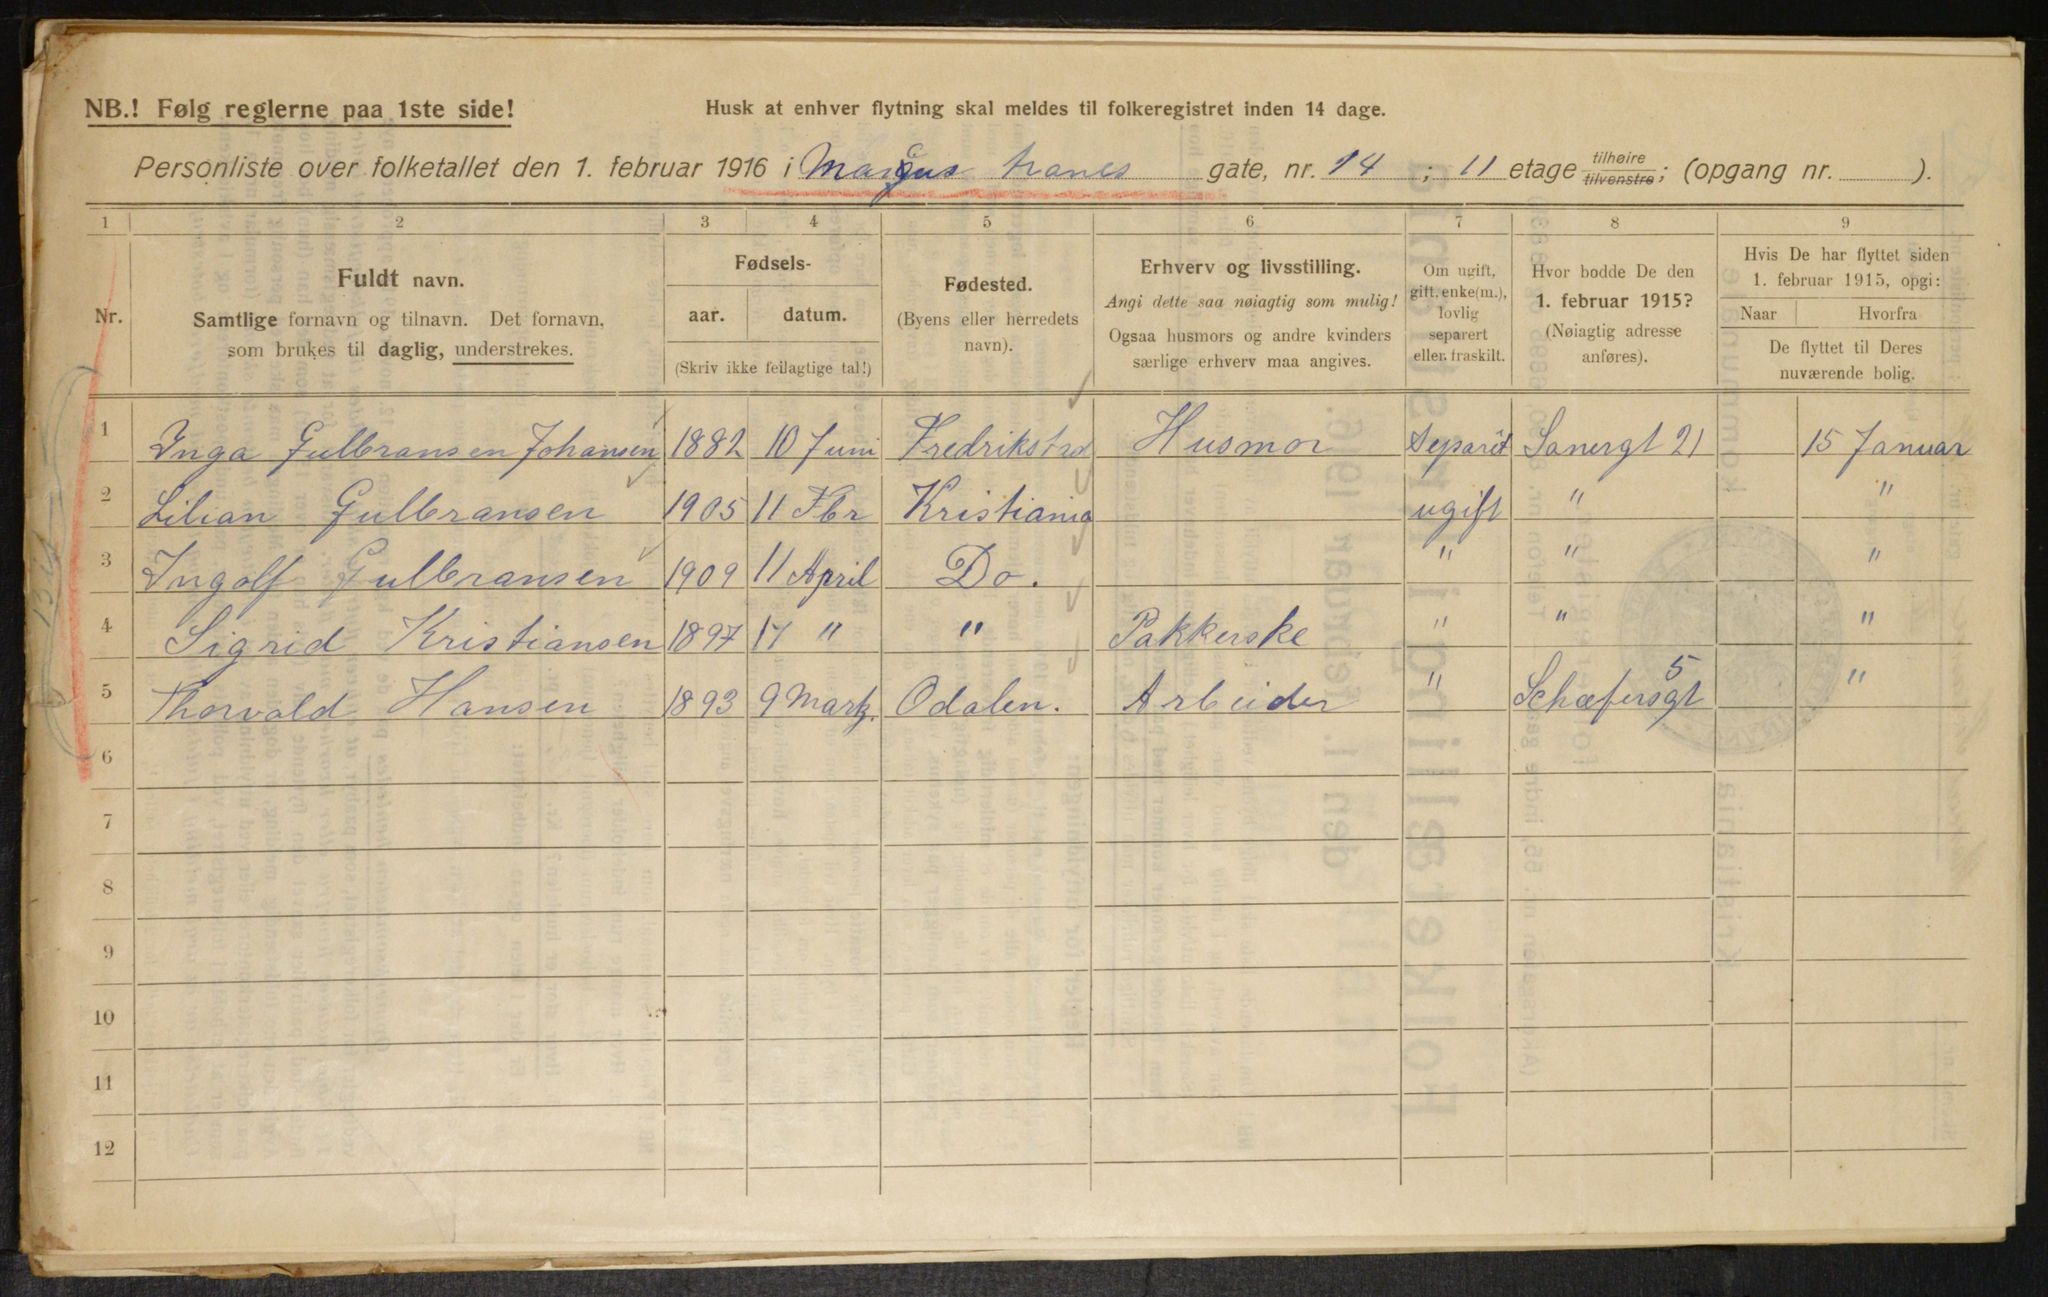 NB.! Følg reglerne paa 1ste side!
Husk at enhver flytning skal meldes til folkeregistret inden 14 dage.
Personliste over folketallet den 1. februar 1916 i Marcus tranes gate, nr. 14 ; 11 etage tilhøire tilvenstre; (opgang nr. ).
1 2 3 4 5 6 7 8 9
Nr.
Fuldt navn.
Samtlige fornavn og tilnavn. Det fornavn,
som brukes til daglig, understrekes.
Fødsels-
aar. datum.
(Skriv ikke feilagtige tal!)
Fødested.
(Byens eller herredets
navn).
Erhverv og livsstilling.
Angi dette saa nøiagtig som mulig!
Ogsaa husmors og andre kvinders
særlige erhverv maa angives.
Om ugift,
gift, enke(m.),
lovlig
separert
eller fraskilt.
Hvor bodde De den
1. februar 1915?
(Nøiagtig adresse
anføres).
Hvis De har flyttet siden
1. februar 1915, opgi:
Naar Hvorfra
De flyttet til Deres
nuværende bolig.
1 Inga Gulbransen Johansen 1882 10 Juni Fredrikstad Husmor Separêt Sanergt 21 15 Januar
2 Lilian Gulbransen 1905 11 Fbr Kristiania ugift " "
3 Ingolf Gulbransen 1909 11 April Do. " " "
4 Sigrid Kristiansen 1897 17 " " Pakkerske " " "
5 Thorvald Hansen 1893 9 Marts. Odalen. Arbeider " Schæfersgt 5 "
6
7
8
9
10
11
12